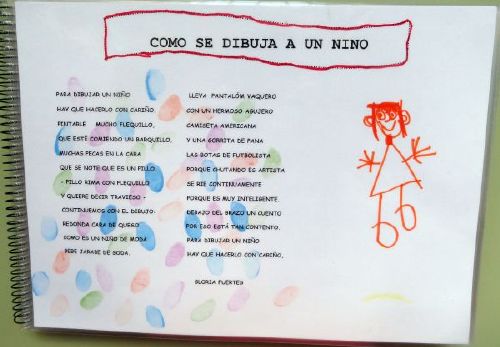 COMO SE DIBUJA A UN NINO
PARA DIBUJAR UN NIÑO
HAY QUE HACERLO CON CARIÑO.
PINTARLE MUCHO FLEQUILLO,
QUE ESTÉ COMIENDO UN BARQUILLO,
MUCHAS PECAS EN LA CARA
QUE SE NOTE QUE ES UN PILLO.
- PILLO RIMA CON FLEQUILLO
Y QUIERE DECIR TRAVIESO -
CONTINUEMOS CON EL DIBUJO:
REDONDA CARA DE QUESO
COMO ES UN NIÑO DE MODA
BEBE JARABE DE SODA.
LLEVA PANTALÓM VAQUERO
CON UN HERMOSO AGUJERO
CAMISETA AMERICANA
Y UNA GORRITA DE PANA
LAS BOTAS DE FUTBOLISTA
PORQUE CHUTANDO ES ARTISTA
SE RIE CONTINUAMENTE
PORQUE ES MUY INTELIGENTE.
DEBAJO DEL BRAZO UN CUENTO
POR ESO ESTÁ TAN CONTENTO.
PARA DIBUJAR UN NIÑO
HAY QUE HACERLO CON CARIÑO.
GLORIA FUERTES